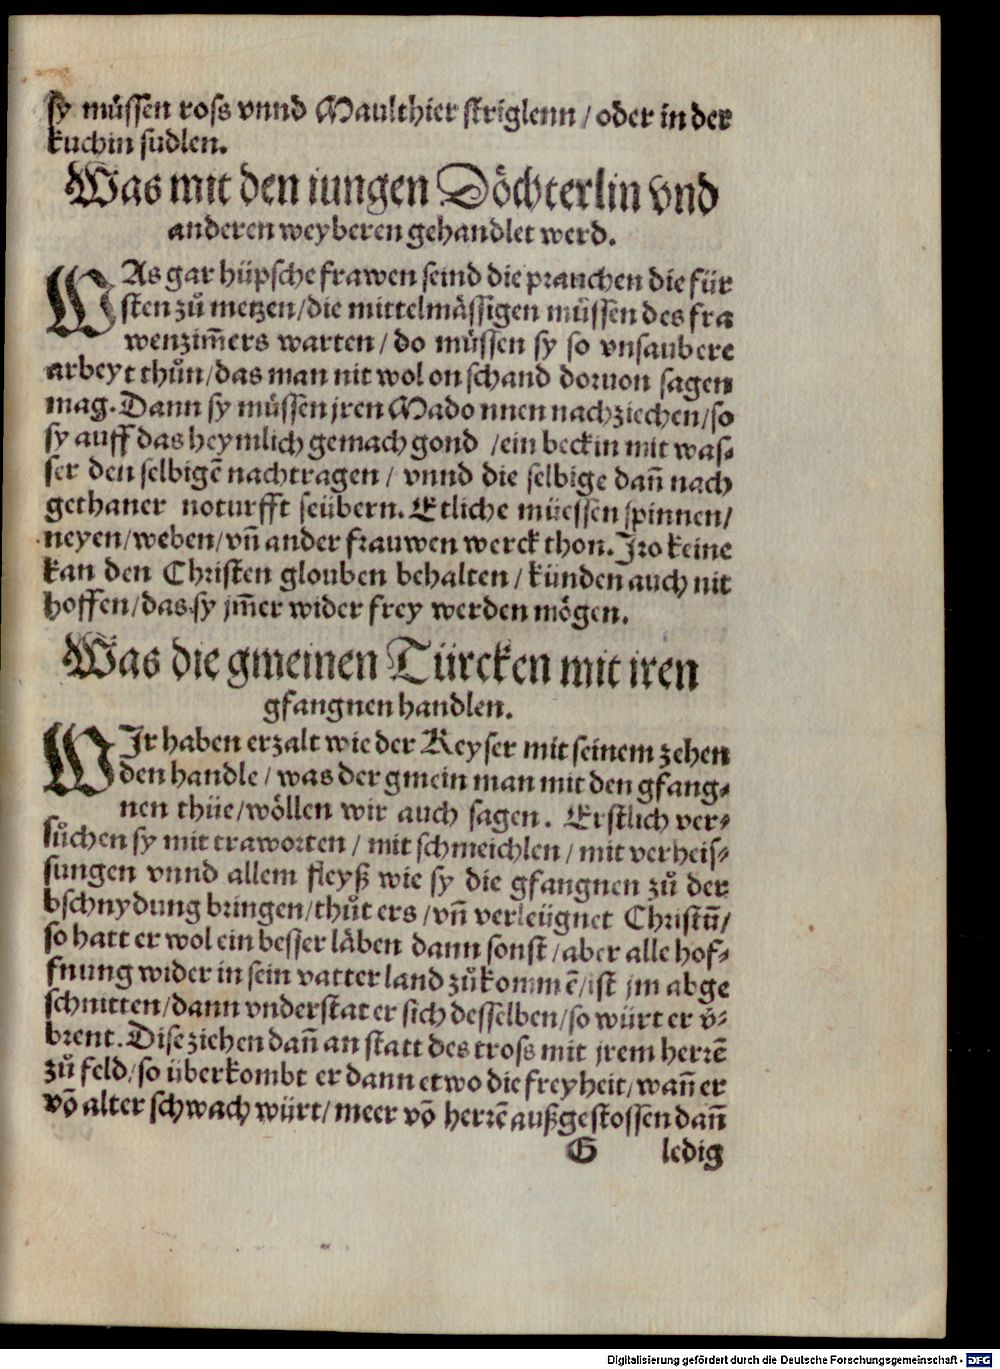 sy müssen ross vnnd Maulthier striglenn / oder in der
kuchin sudlen.
Was mit den iungen Döchterlin vnd
anderen weyberen gehandlet werd.
WAs gar hüpsche frawen seind die prauchen die für
sten zů metzen/die mittelmässigen müssen des fra
wenzim̄ers warten / do müssen sy so vnsaubere
arbeyt thůn/das man nit wol on schand doruon sagen
mag. Dann sy müssen jren Mado nnen nachziechen/so
sy auff das heymlich gemach gond /ein beckin mit was⸗
ser den selbigē nachtragen / vnnd die selbige dan̄ nach
gethaner noturfft seübern. Etliche müessen spinnen/
neyen/weben/vn̄ ander frauwen werck thon. Iro keine
kan den Christen glouben behalten / künden auch nit
hoffen/das sy jm̄er wider frey werden mögen.
Was die gmeinen Türcken mit iren
gfangnen handlen.
WIr haben erzalt wie der Keyser mit seinem zehen
den handle / was der gmein man mit den gfang⸗
nen thüe/wöllen wir auch sagen. Erstlich ver⸗
sůchen sy mit traworten / mit schmeichlen / mit verheis⸗
sungen vnnd allem fleyß wie sy die gfangnen zů der
bschnydung bringen/thůt ers /vn̄ verleügnet Christū/
so hatt er wol ein besser läben dann sonst /aber alle hof⸗
fnung wider in sein vatter land zůkommē/ist jm abge
schnitten/dann vnderstat er sich desselben/so würt er v̄⸗
brent. Dise ziehen dan̄ an statt des tross mit jrem herrē
zů feld/so überkombt er dann etwo die freyheit/wan̄ er
vō alter schwach würt/meer vō herrē außgestossen dan̄
G ledig
Digitalisierung gefördert durch die Deutsche Forschungsgemeinschaft - DFG